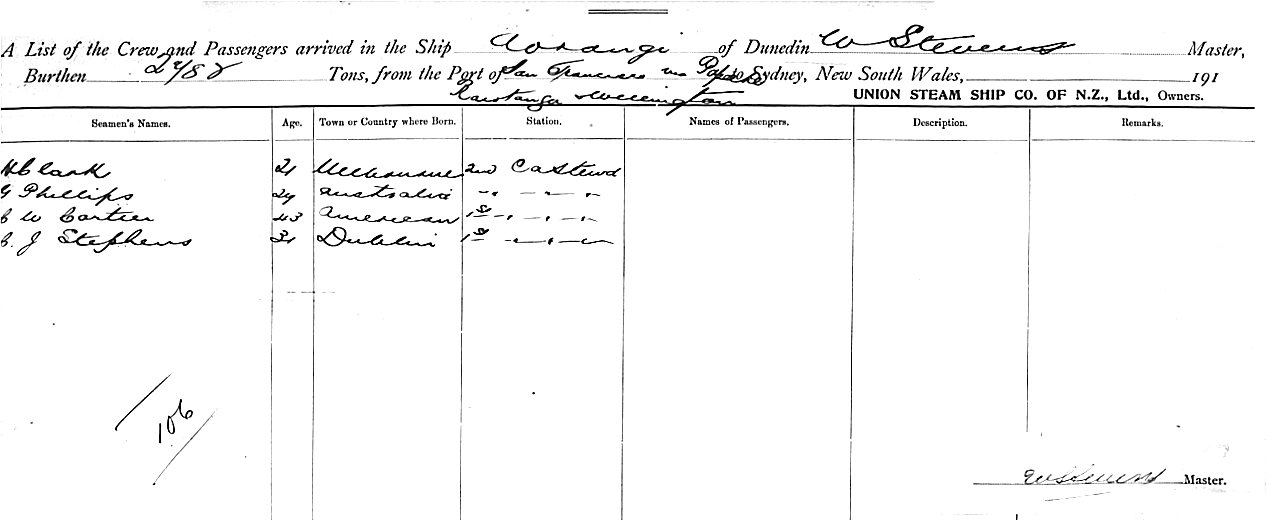 A List of the Crew and Passengers arrived in the Ship Aorangi of Dunedin W Stevens Master,
Burthen Tons, from the Port of San Francisco via to Sydney, New South Wales, 191
Wellington UNION STEAM SHIP CO. OF N.Z., Ltd., Owners.
Seamen's Names. Age. Town or Country where Born. Station. Names of Passengers. Description. Remarks.
H Clark 21 Melbourne 2nd C a Steward
G Phillips 24 Australia -„ -„ -„
C W Cartier 43 American 1st -„ -„ -„
C. J Stephens 31 Dublin 1st -„-„-
106
W Stevens Master.